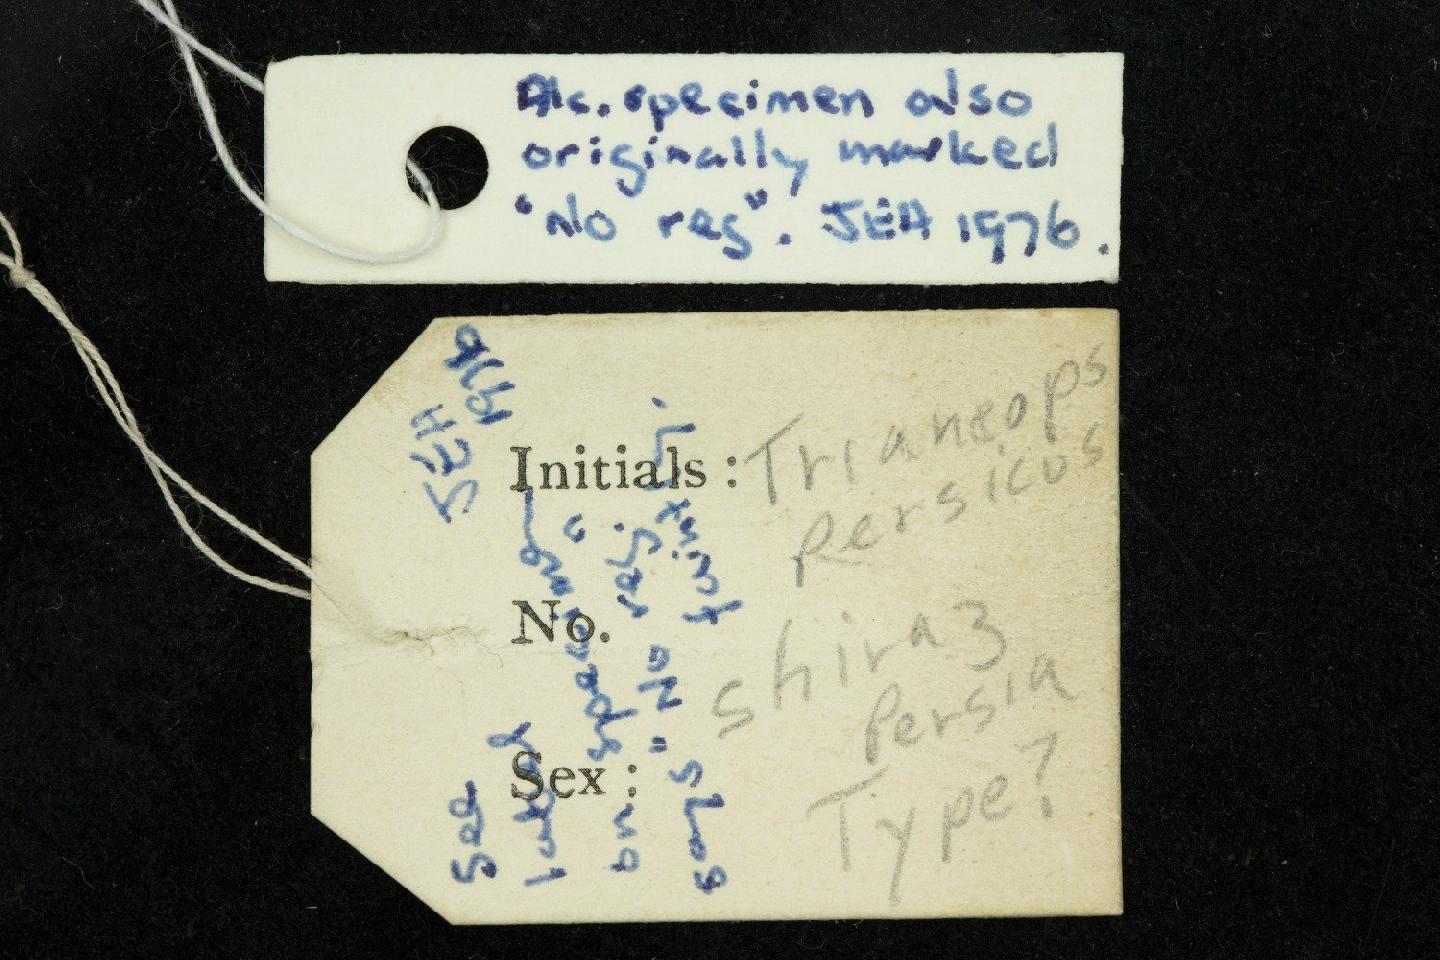 Alc. specimen also
originally marked
"No reg". JEH 1976.
Initials :
No.
Sex :
Trianeops
persicus
Shiraz
Persia
Type?
See
label
on specimen
says "No reg.
JEH
1976